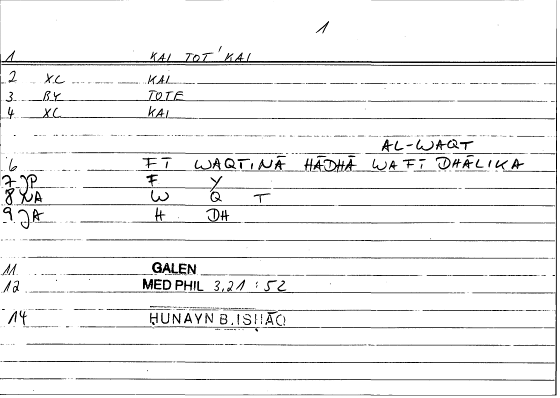 1
1 KAI TOT' KAI
2 XC KAI
3 BY TOTE
4 XC KAI
AL-WAQT
6 FĪ WAQTINĀ HĀDHĀ WAFĪ DHĀLIKA
7 JP F Y
8 NA W Q T
9 JA H DH
11 GALEN
12 MED PHIL 3,21 : 52
14 ḤUNAYN B. ISḤĀQ